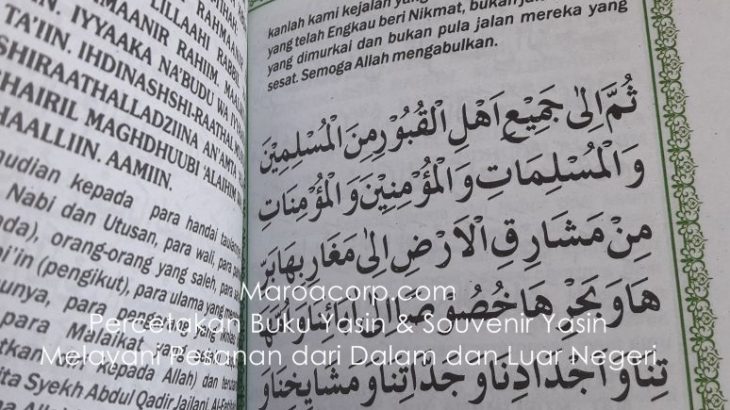 LILLAAHI RABBIL
RAHMAANIR RAHIIM.
TA'IIN. IYYAAKA NA'BUDU WA
IHDINASHSHI-RAATHAL
SHIRAATHALLADZIINA AN'AMTA
GHAIRIL MAGHDHUUBI 'ALAIHIM
AAMIIN.
kepada para handai
Nabi dan Utusan, para wali, para
orang-orang yang saleh, para
(pengikut), para ulama yang
para
para Malaikat
kepada Allah) dan
Syekh Abdul Qadir Jailani
kanlah kami kejalan yang
yang telah Engkau beri Nikmat, bukan
yang dimurkai dan bukan pula jalan mereka yang
sesat. Semoga Allah mengabulkan.
ثُمَّ اِلٰى جَمِيْعِ اَهْلِ الْقُبُوْرِ مِنَ الْمُسْلِمِيْنَ
وَالْمُسْلِمَاتِ وَالْمُؤْمِنِيْنَ وَالْمُؤْمِنَاتِ
مِنْ مَشَارِقِ الْاَرْضِ اِلٰى مَغَارِبِهَا بَرِّ
هَا وَبَحْرِهَا خُصُوْصًا اِلٰى اٰبَائِنَا وَاُمَّهَا
تِنَا وَاَجْدَادِنَا وَجَدَّاتِنَا وَمَشَايِخِنَا وَ
Maroacorp.com
Percetakan Buku Yasin & Souvenir Yasin
Melayani Pesanan dari Dalam dan Luar Negeri